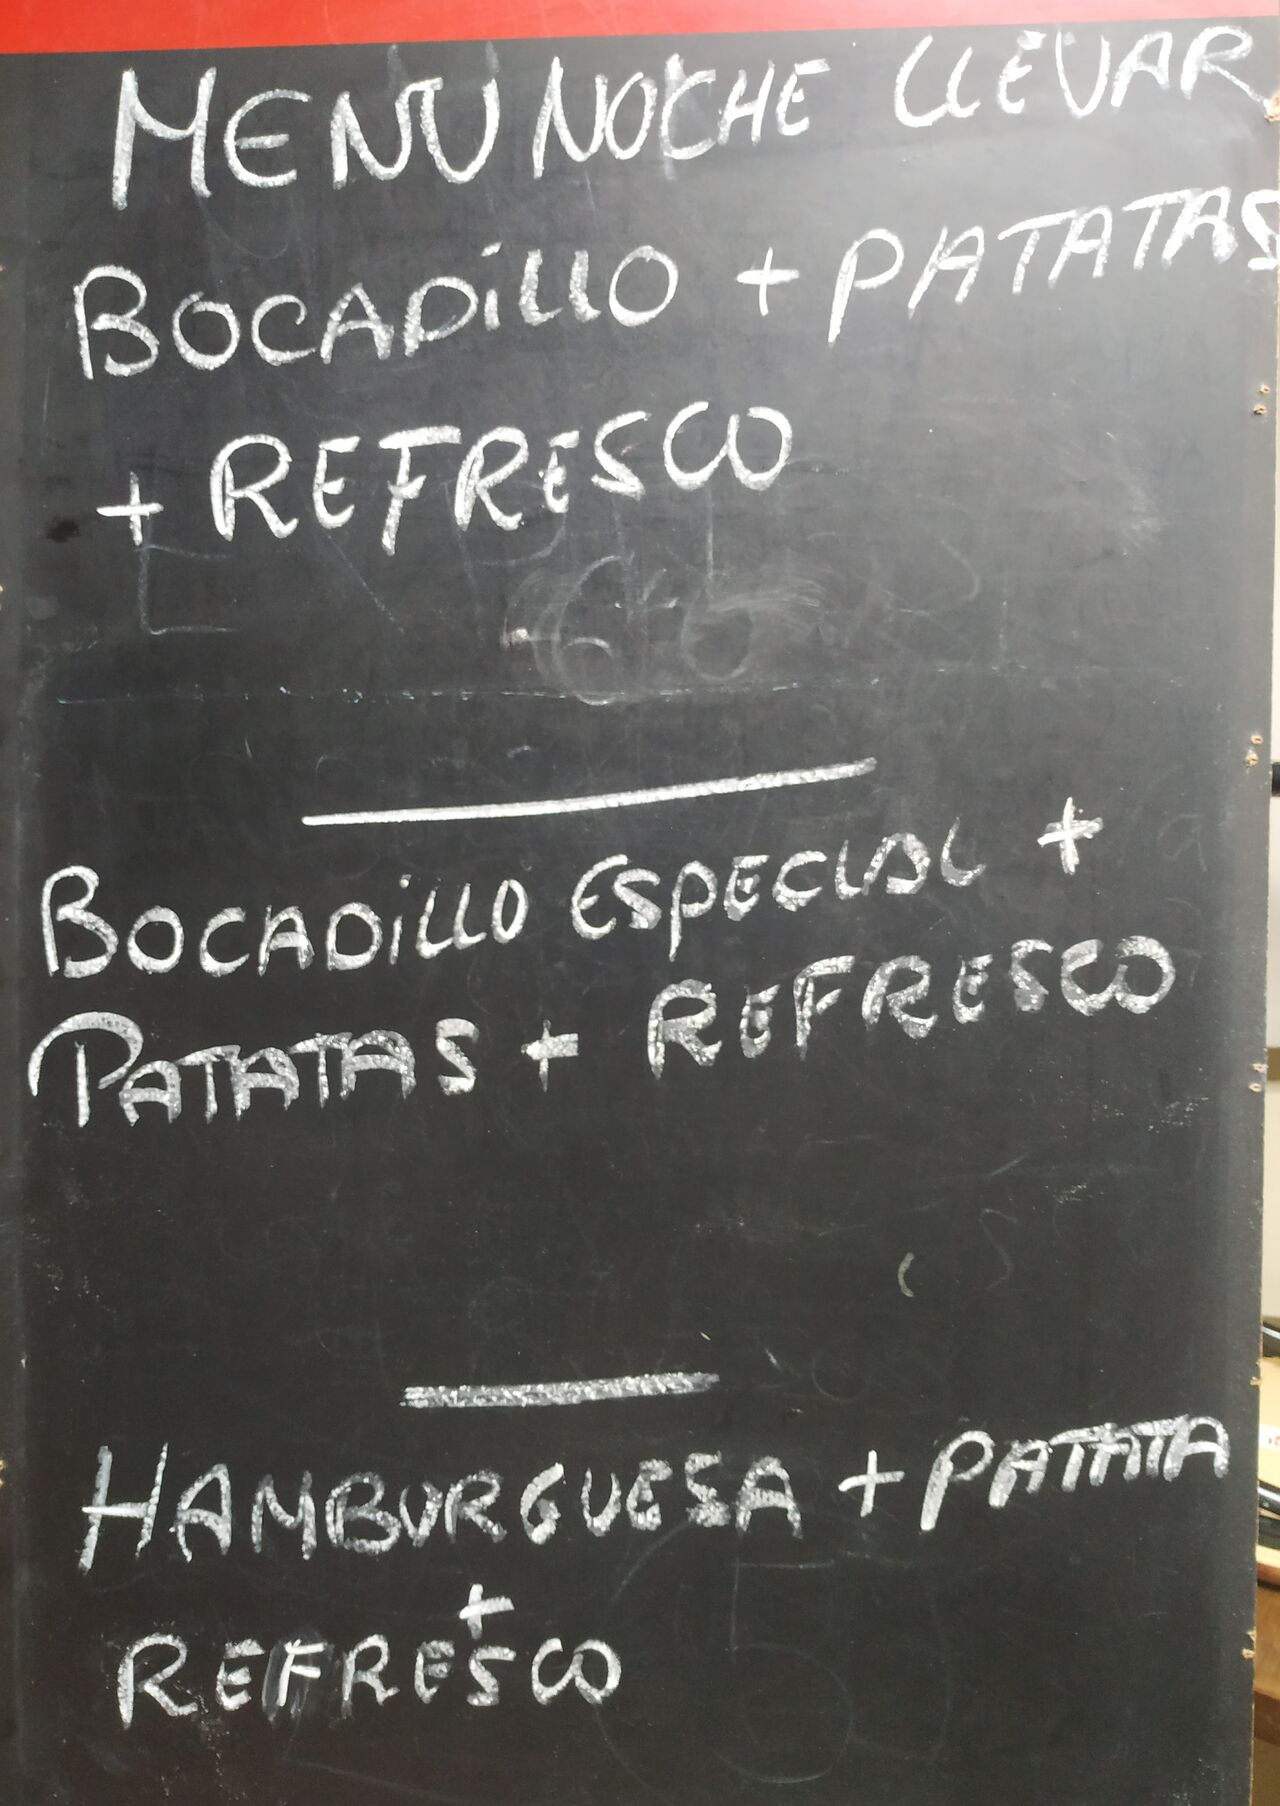 MENU NOCHE LLEVAR
BOCADiLLO + PATATAS
+ REFRESCO
BOCADiLLO ESPECIAL +
PATATAS + REFRESCO
HAMBURGUESA + PATATA
+
REFRESCO